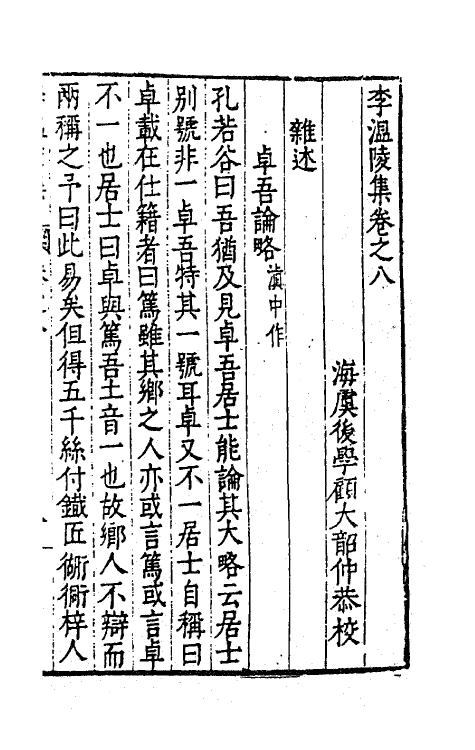 李溫陵集卷之八
海虞後學顧大韶仲恭校
雜述
卓吾論略滇中作
孔若谷曰吾猶及見卓吾居士能論其大略云居士
別號非一卓吾特其一號耳卓又不一居士自稱曰
卓載在仕籍者曰篤雖其鄉之人亦或言篤或言卓
不一也居士曰卓與篤吾土音一也故鄉人不辯而
兩稱之予曰此易矣但得五千絲付鐵匠衚衕梓人